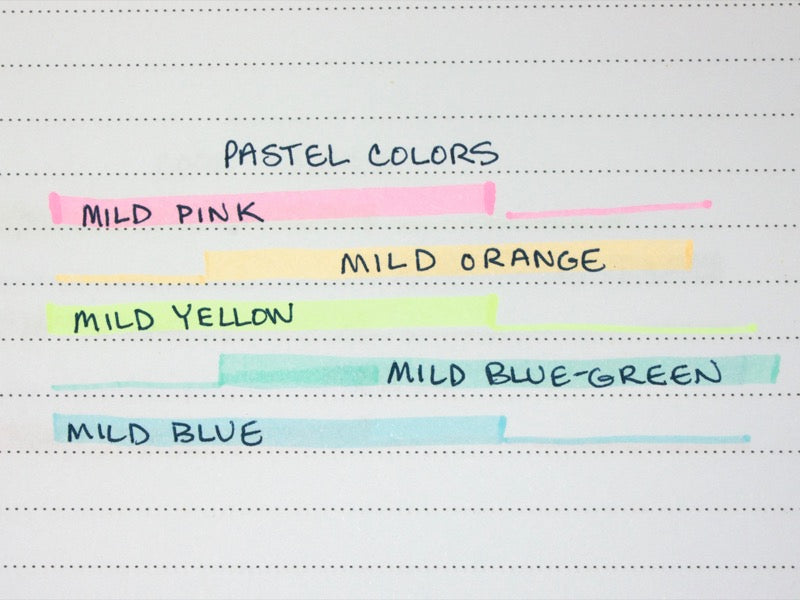 PASTEL COLORS
MILD PINK
MILD ORANGE
MILD YELLOW
MILD BLUE-GREEN
MILD BLUE